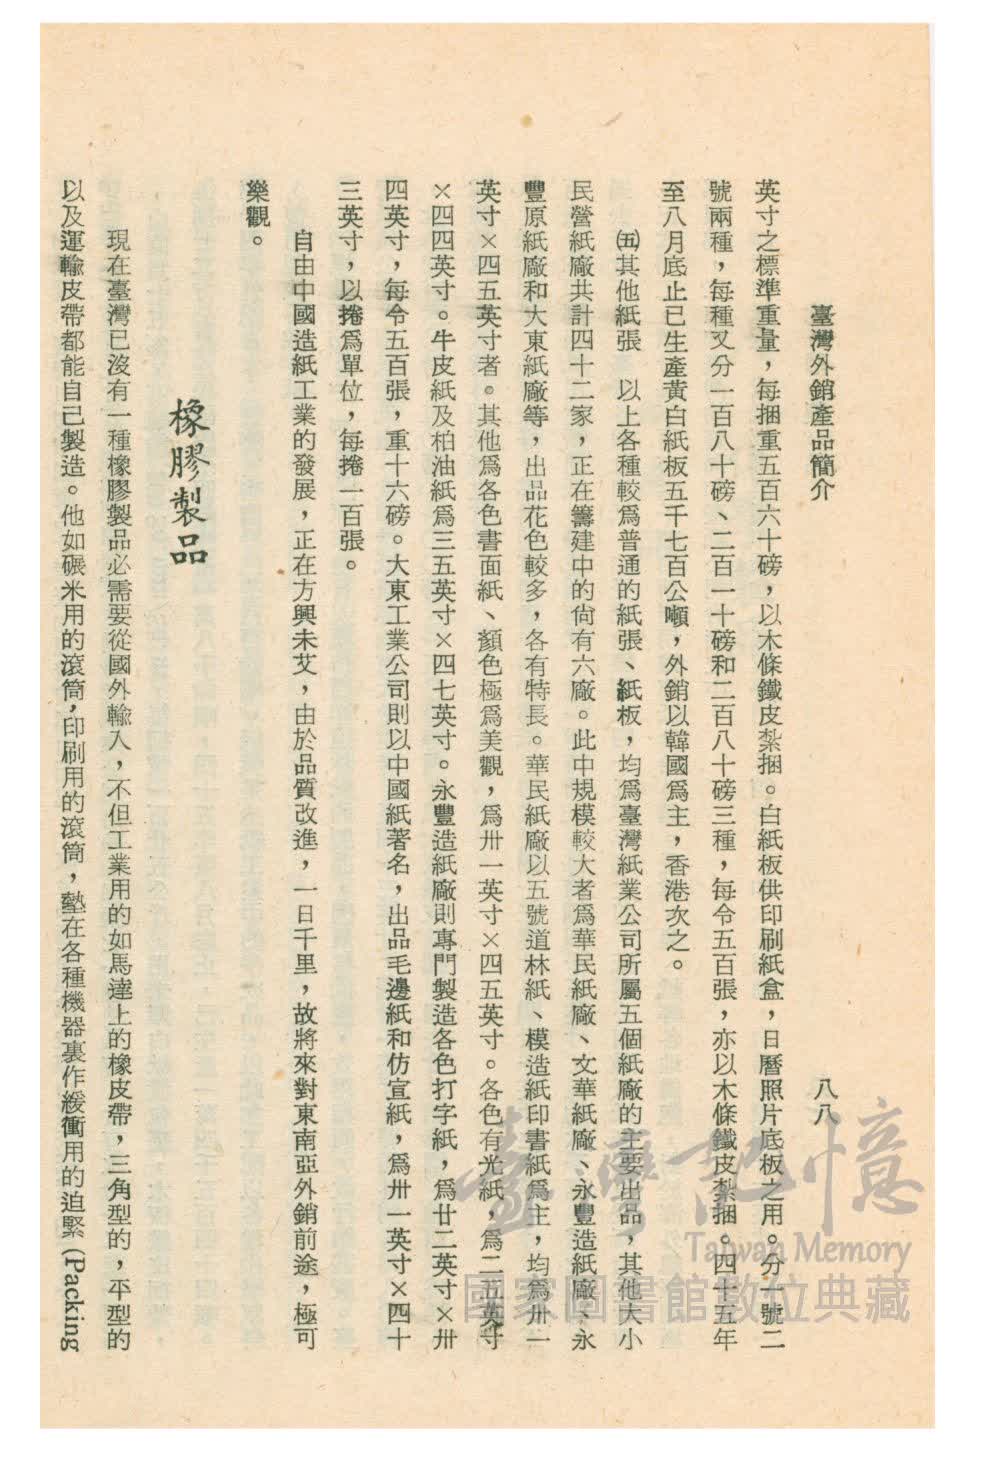 臺灣外銷產品簡介
八八
英寸之標準重量，每捆重五百六十磅，以木條鐵皮紮捆。白紙板供印刷紙盒，日曆照片底板之用。分一號二
號兩種，每種又分一百八十磅、二百一十磅和二百八十磅三種，每令五百張，亦以木條鐵皮紮捆。四十五年
至八月底止已生產黃白紙板五千七百公噸，外銷以韓國爲主，香港次之。
㈤其他紙張　以上各種較爲普通的紙張、紙板，均爲臺灣紙業公司所屬五個紙廠的主要出品，其他大小
民營紙廠共計四十二家，正在籌建中的尙有六廠。此中規模較大者爲華民紙廠、文華紙廠、永豐造紙廠、永
豐原紙廠和大東紙廠等，出品花色較多，各有特長。華民紙廠以五號道林紙、模造紙印書紙爲主，均爲卅一
英寸×四五英寸者。其他爲各色書面紙、顏色極爲美觀，爲卅一英寸×四五英寸。各色有光紙，爲二五英寸
×四四英寸。牛皮紙及柏油紙爲三五英寸×四七英寸。永豐造紙廠則專門製造各色打字紙，爲廿二英寸×卅
四英寸，每令五百張，重十六磅。大東工業公司則以中國紙著名，出品毛邊紙和仿宣紙，爲卅一英寸×四十
三英寸，以捲爲單位，每捲一百張。
自由中國造紙工業的發展，正在方興未艾，由於品質改進，一日千里，故將來對東南亞外銷前途，極可
樂觀。
橡膠製品
現在臺灣已沒有一種橡膠製品必需要從國外輸入，不但工業用的如馬達上的橡皮帶，三角型的，平型的
以及運輸皮帶都能自己製造。他如碾米用的滾筒，印刷用的滾筒，墊在各種機器裏作緩衝用的迫緊 (Packing
臺灣記憶
Taiwan Memory
國家圖書館數位典藏